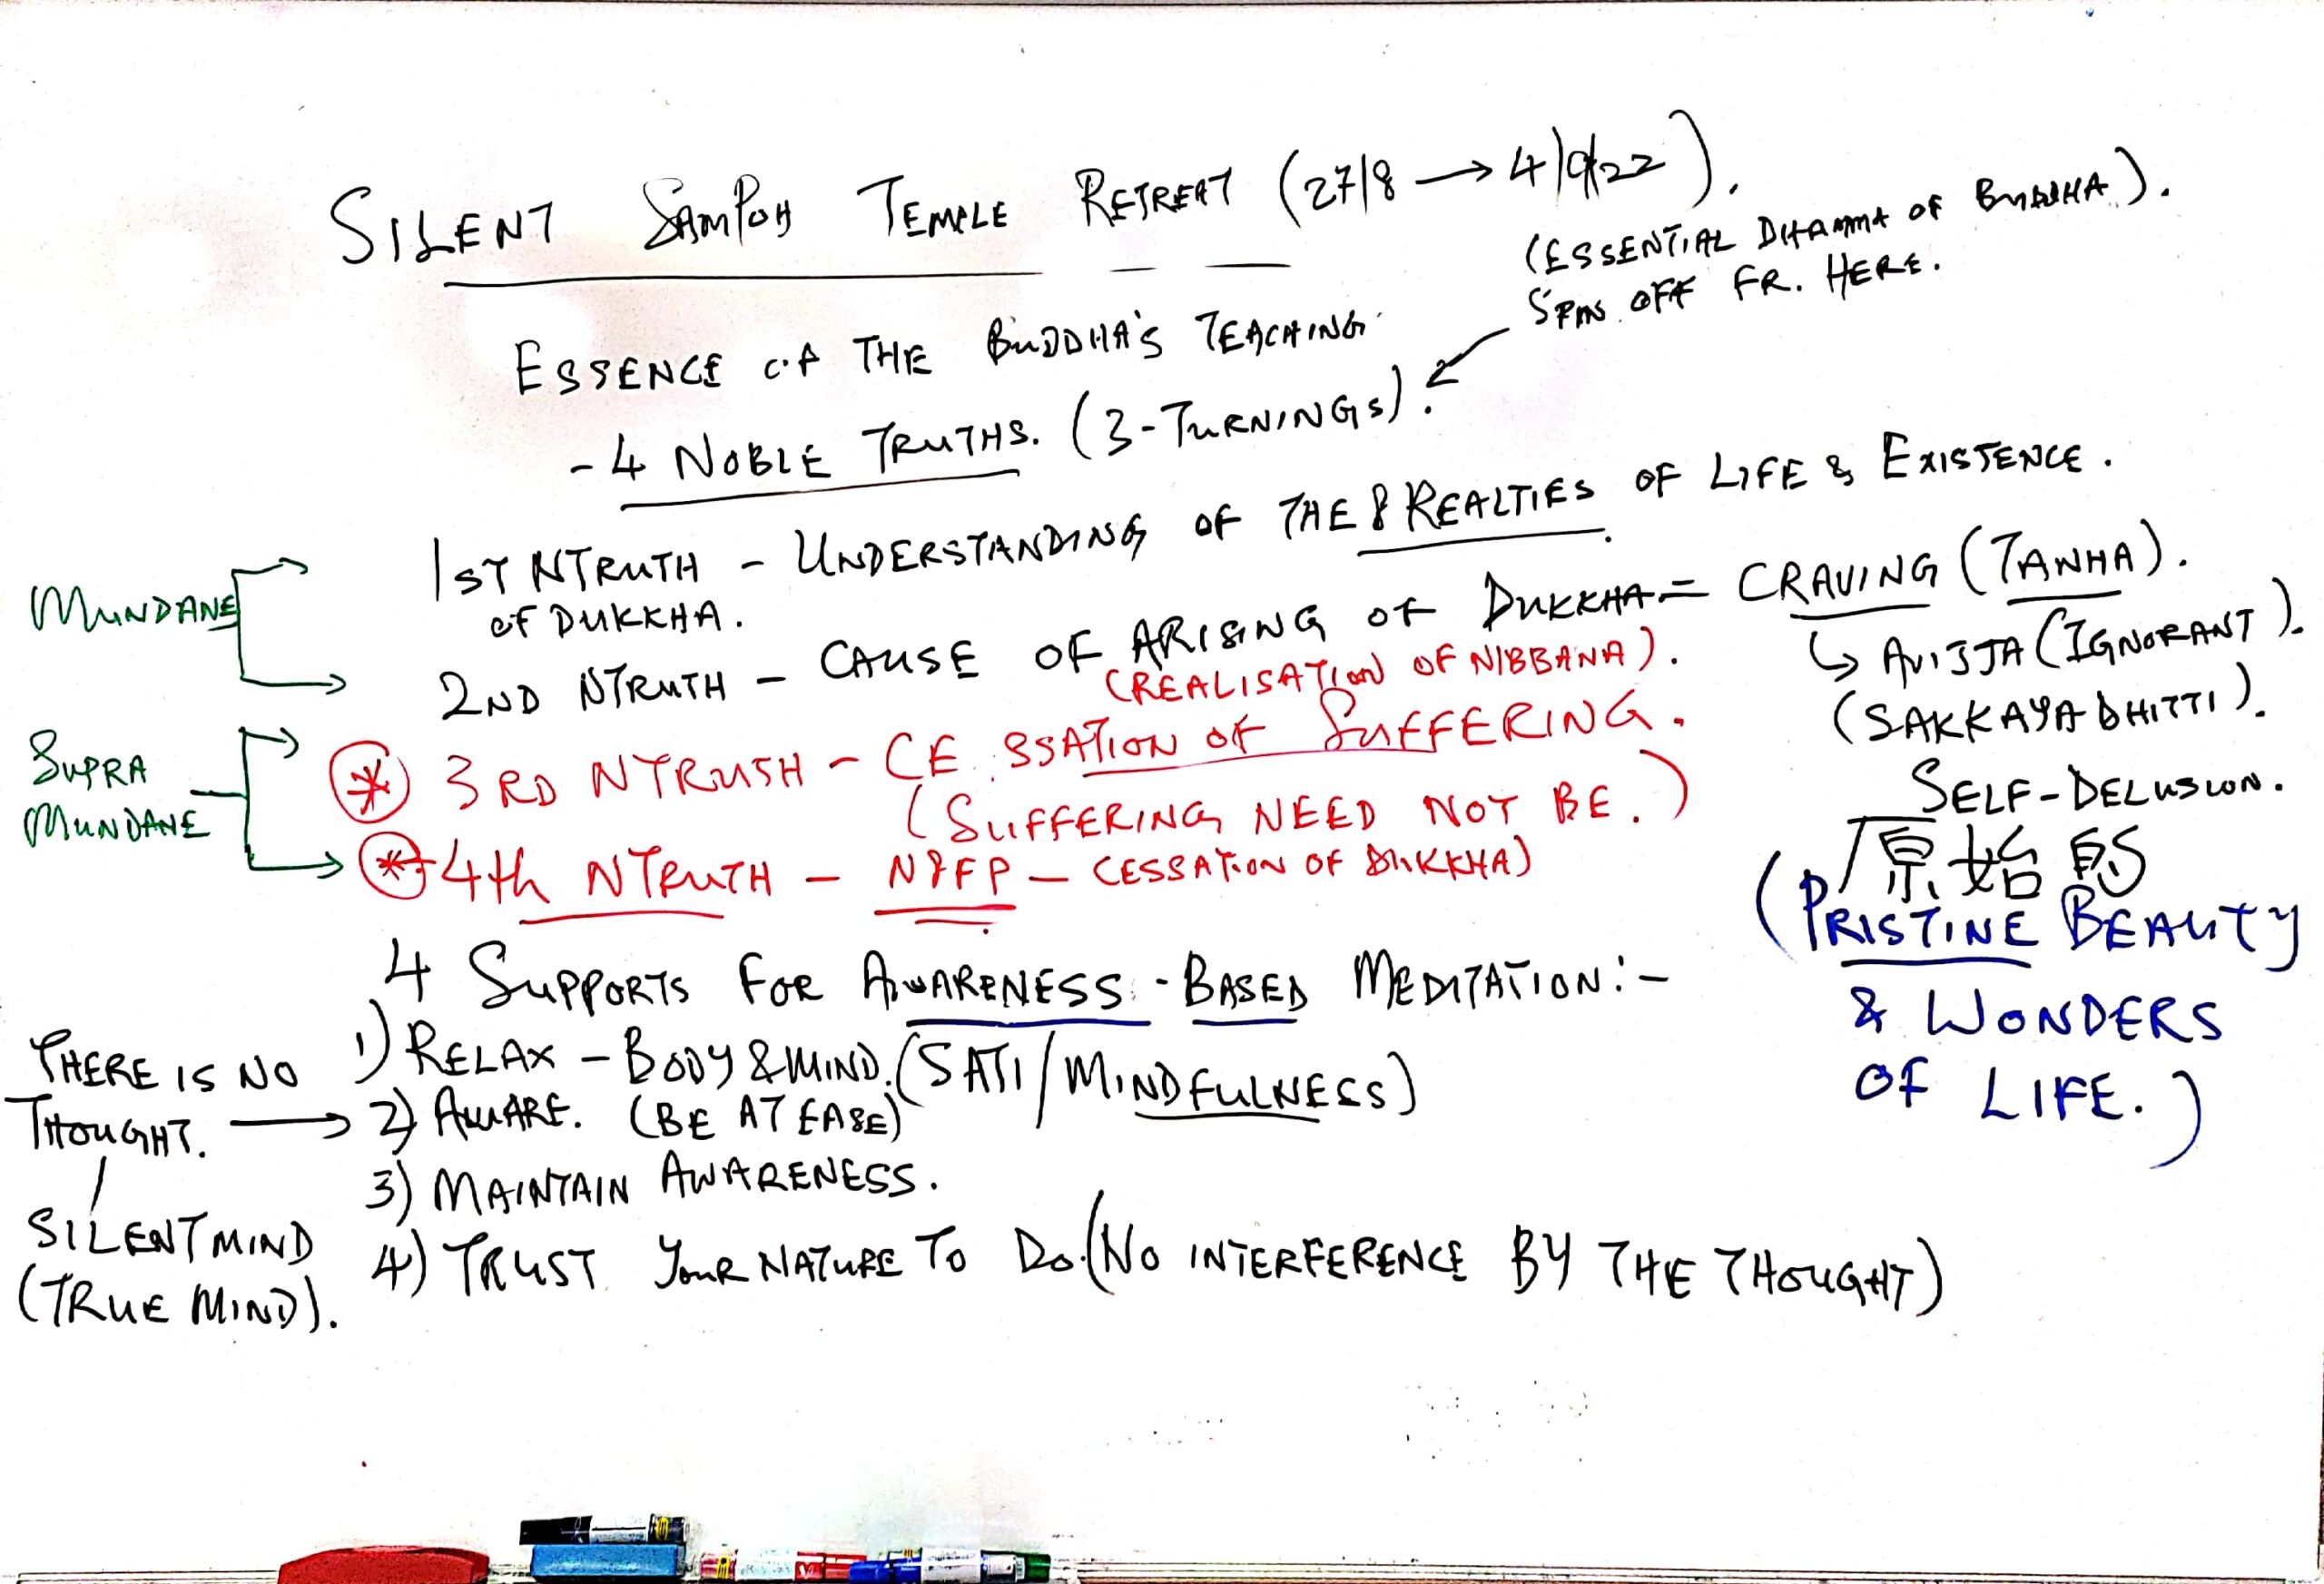 SILENT SAMPOH TEMPLE RETREAT (27/8 → 4/9/22).
(ESSENTIAL DHAMMA OF BUDDHA).
SPINS OFF FR. HERE.
ESSENCE OF THE BUDDHA'S TEACHING
- 4 NOBLE TRUTHS. (3-TURNINGS).
MUNDANE
1ST NTRUTH - UNDERSTANDING OF THE 8 REALTIES OF LIFE & EXISTENCE.
OF DUKKHA.
2ND NTRUTH - CAUSE OF ARISING OF DUKKHA = CRAVING (TANHA).
↳ AVIJJA (IGNORANT).
(SAKKAYA DHITTI).
SELF-DELUSION.
SUPRA
MUNDANE
(REALISATION OF NIBBANA).
* 3RD NTRUTH - CESSATION OF SUFFERING.
(SUFFERING NEED NOT BE.)
* 4th NTRUTH - N8FP - CESSATION OF DUKKHA)
原始的
(PRISTINE BEAUTY
& WONDERS
OF LIFE.)
4 SUPPORTS FOR AWARENESS-BASED MEDITATION:-
1) RELAX - BODY & MIND. (SATI/MINDFULNESS)
2) AWARE. (BE AT EASE)
3) MAINTAIN AWARENESS.
4) TRUST YOUR NATURE TO DO. (NO INTERFERENCE BY THE THOUGHT)
THERE IS NO
THOUGHT. →
SILENT MIND
(TRUE MIND).